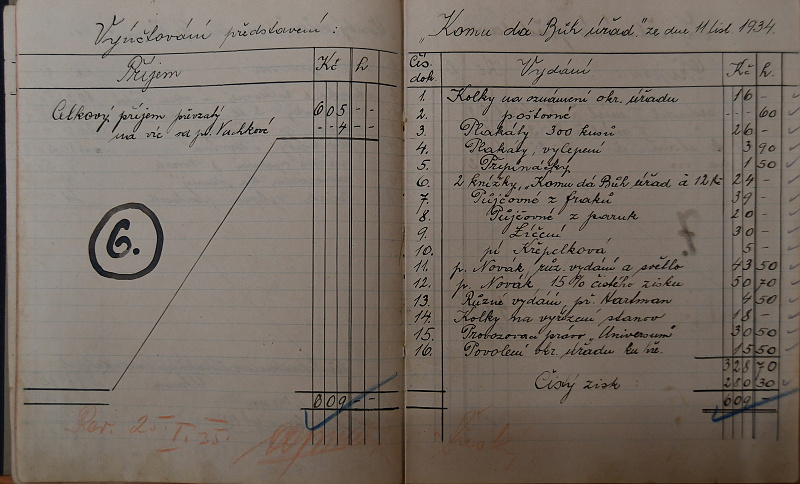 Vyúčtování představení:
Příjem Kč h
Celkový příjem převzatý 605 --
na víc od p. Vachkové --4 --
6.
609 --
Rev. 25. I. 35.
"Komu dá Bůh úřad." ze dne 11 list. 1934.
Čís. dok. Vydání Kč h.
1. Kolky na oznámení okr. úřadu 16 -
2. poštovné --- 60
3. Plakáty 300 kusů 26 -
4. Plakáty, vylepení 3 90
5. Připínáčky 1 50
6. 2 knížky, "Komu dá Bůh úřad à 12 Kč 24 -
7. Půjčovné z fraků 39 -
8. Půjčovné z paruk 20 -
9. Líčení 30 -
10. pí Křepelková 5 -
11. p. Novák, růz. vydání a světlo 43 50
12. p. Novák, 15% čistého zisku 50 70
13. Různé vydání, př. Hartman 4 50
14. Kolky na vyřízení stanov 18 -
15. Provozovací právo "Universum" 30 50
16. Povolení okr. úřadu ku 15 50
328 70
Čisý zisk: 280 30
609 -
7.